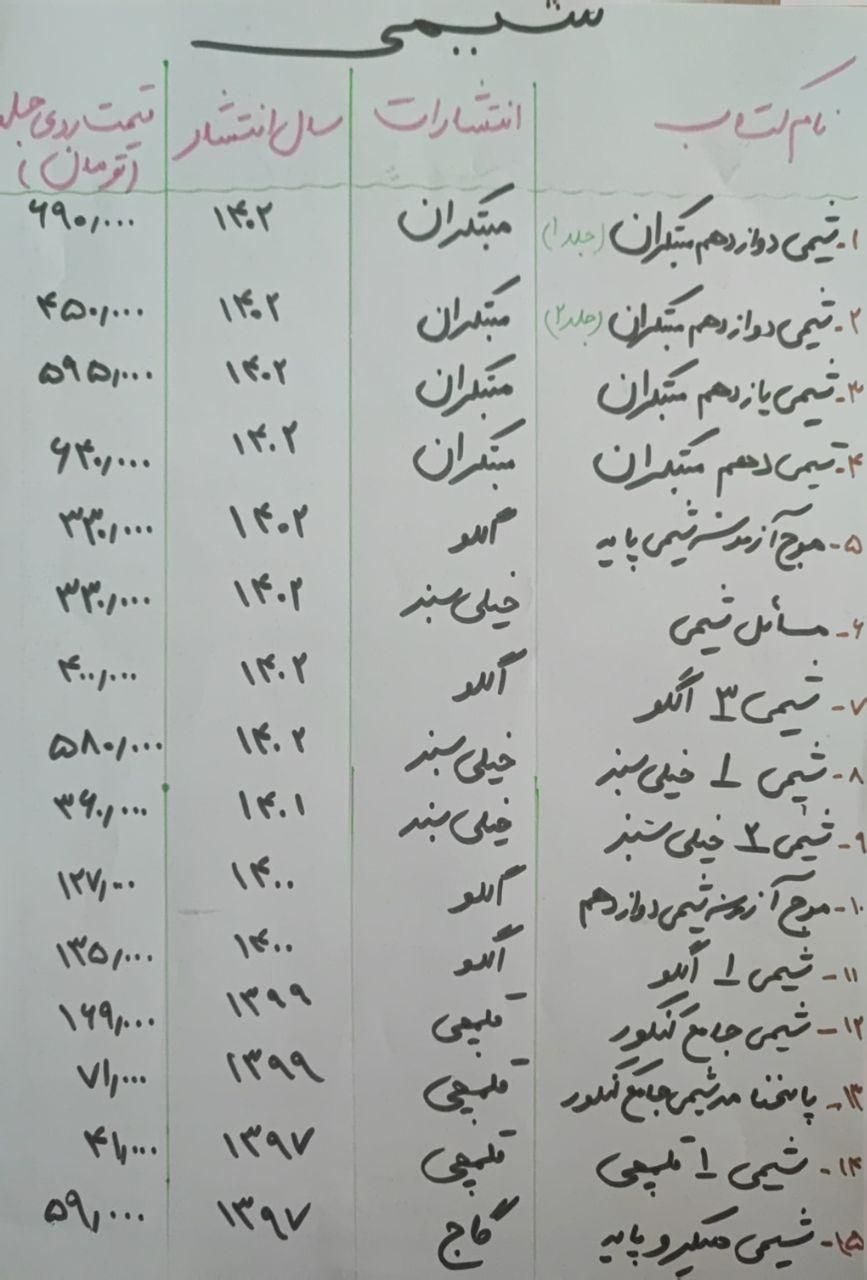 شیمی
نام کتاب انتشارات سال انتشار قیمت روی جلد (تومان)
۱- شیمی دوازدهم مبتکران (جلد ۱) مبتکران ۱۴۰۲ ۶۹۰,۰۰۰
۲- شیمی دوازدهم مبتکران (جلد ۲) مبتکران ۱۴۰۲ ۴۵۰,۰۰۰
۳- شیمی یازدهم مبتکران مبتکران ۱۴۰۲ ۵۹۵,۰۰۰
۴- شیمی دهم مبتکران مبتکران ۱۴۰۲ ۶۴۰,۰۰۰
۵- موج آزمون شیمی پایه الگو ۱۴۰۲ ۳۳۰,۰۰۰
۶- مسائل شیمی خیلی سبز ۱۴۰۲ ۳۳۰,۰۰۰
۷- شیمی ۳ الگو الگو ۱۴۰۲ ۴۰۰,۰۰۰
۸- شیمی ۱ خیلی سبز خیلی سبز ۱۴۰۲ ۵۸۰,۰۰۰
۹- شیمی ۲ خیلی سبز خیلی سبز ۱۴۰۱ ۳۶۰,۰۰۰
۱۰- موج آزمون شیمی دوازدهم الگو ۱۴۰۰ ۱۲۷,۰۰۰
۱۱- شیمی ۱ الگو الگو ۱۴۰۰ ۱۳۵,۰۰۰
۱۲- شیمی جامع کنکور قلمچی ۱۳۹۹ ۱۶۹,۰۰۰
۱۳- پاسخنامه شیمی جامع کنکور قلمچی ۱۳۹۹ ۷۱,۰۰۰
۱۴- شیمی ۱ قلمچی قلمچی ۱۳۹۷ ۴۱,۰۰۰
۱۵- شیمی میکرو پایه گاج ۱۳۹۷ ۵۹,۰۰۰